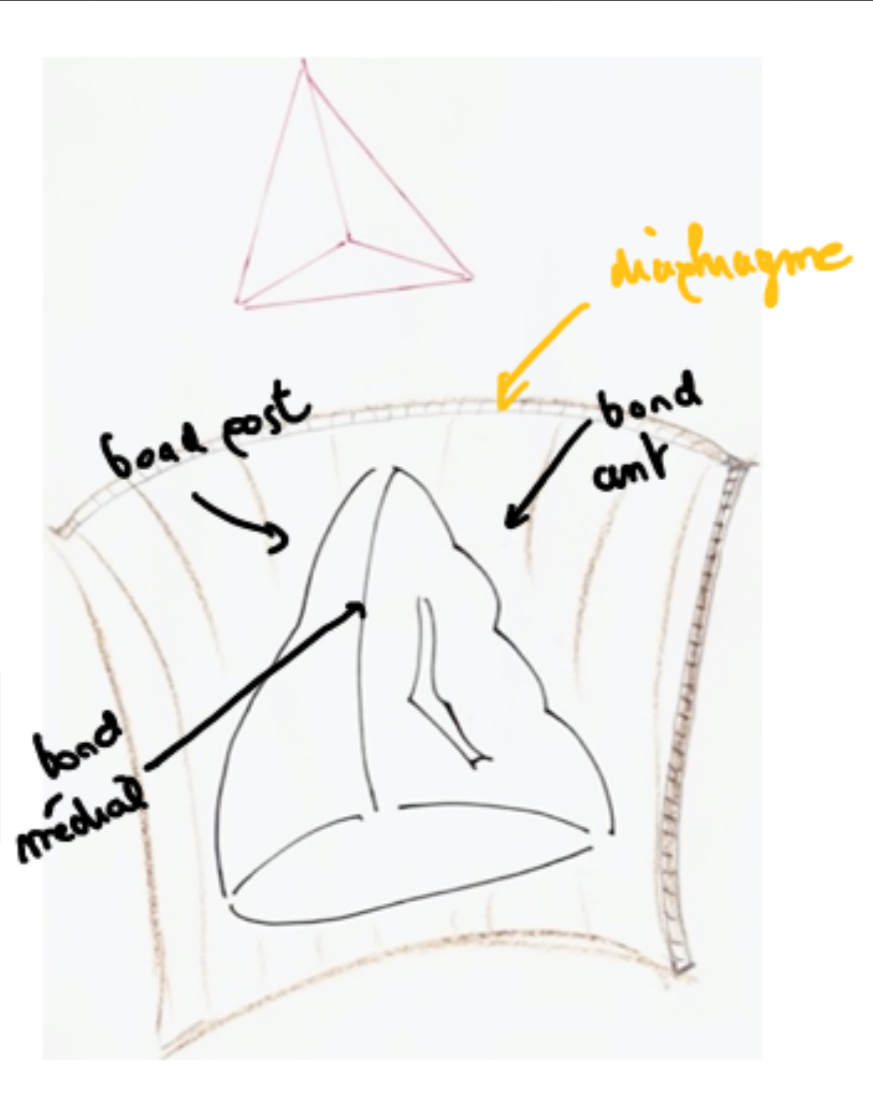 diaphragme
bord post
bord
ant
bord
médial